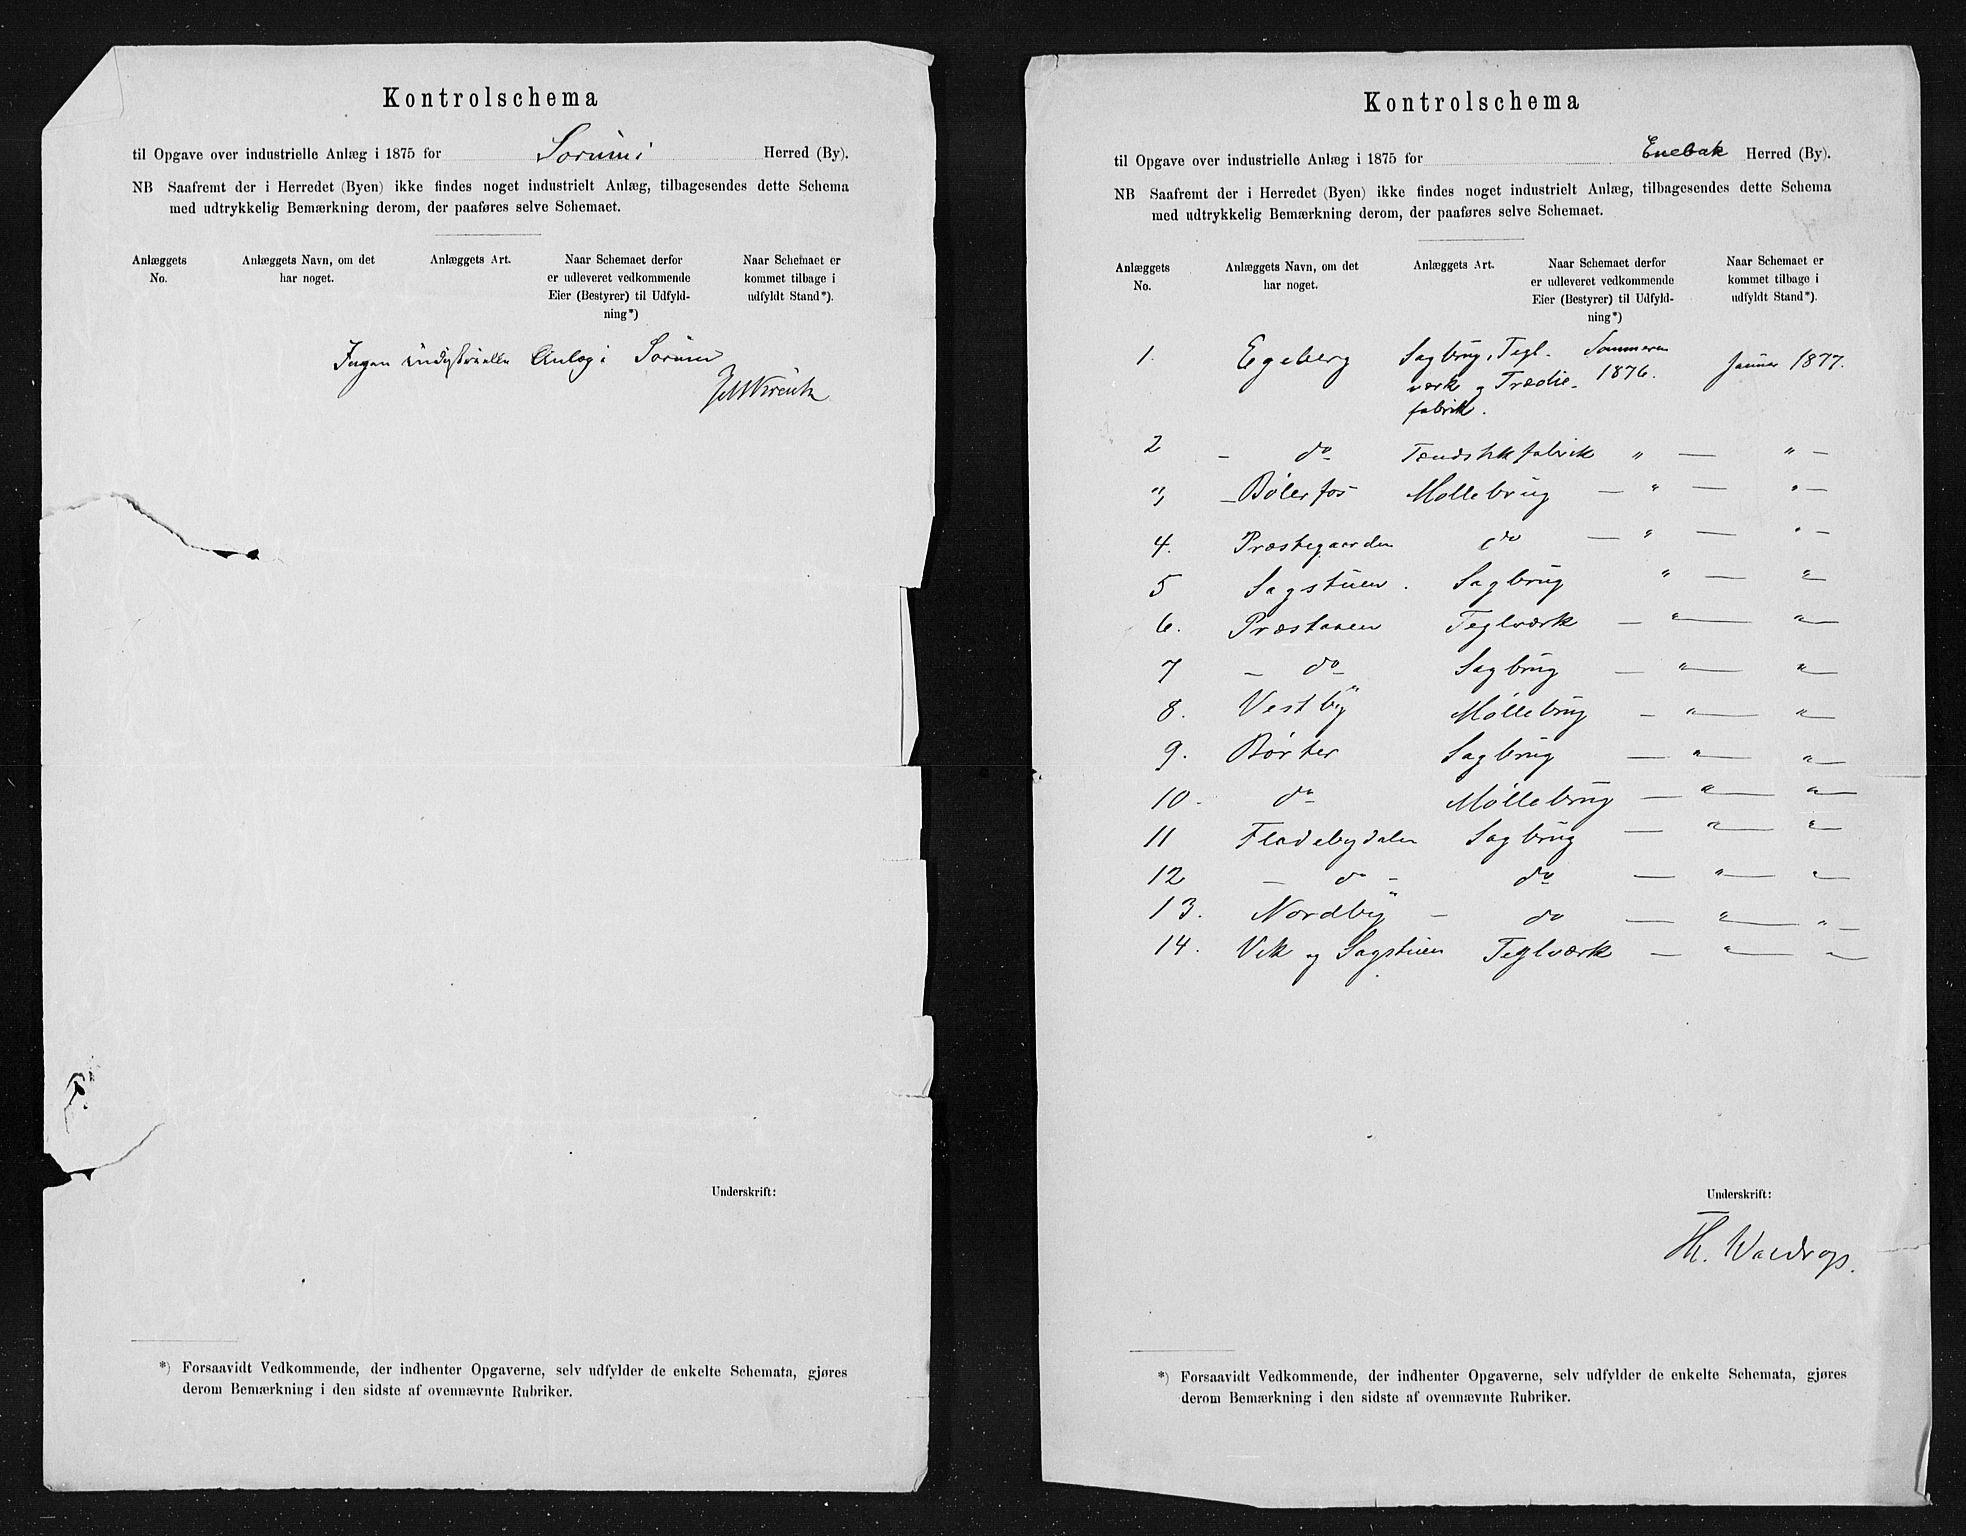 Kontrolschema
til Opgave over industrielle Anlæg i 1875 for Sørum Herred (By).
NB Saafremt der i Herredet (Byen) ikke findes noget industrielt Anlæg, tilbagesendes dette Schema
med udtrykkelig Bemærkning derom, der paaføres selve Schemaet.
Anlæggets No.
Anlæggets Navn, om det har noget.
Anlæggets Art.
Naar Schemaet derfor er udleveret vedkommende Eier (Bestyrer) til Udfyldning*)
Naar Schemaet er kommet tilbage i udfyldt Stand*).
Ingen industrielle Anlæg i Sørum
Underskrift:
*) Forsaavidt Vedkommende, der indhenter Opgaverne, selv udfylder de enkelte Schemata, gjøres
derom Bemærkning i den sidste af ovennævnte Rubriker.
Kontrolschema
til Opgave over industrielle Anlæg i 1875 for Enebak Herred (By).
NB Saafremt der i Herredet (Byen) ikke findes noget industrielt Anlæg, tilbagesendes dette Schema
med udtrykkelig Bemærkning derom, der paaføres selve Schemaet.
Anlæggets No.
Anlæggets Navn, om det har noget.
Anlæggets Art.
Naar Schemaet derfor er udleveret vedkommende Eier (Bestyrer) til Udfyldning*)
Naar Schemaet er kommet tilbage i udfyldt Stand*).
1. Egeberg Sagbrug, Tegl- Sommeren
værk og Træslie- 1876. Januar 1877.
fabrik.
2 — do Tændstikfabrik " — " —
" — Bøler fos Møllebrug — " — " —
4. Præstegaarden do — " — " —
5 Sagstuen. Sagbrug " — "
6. Præstaaen Teglværk — " — " —
7 — do Sagbrug — " — "
8. Vestby Møllebrug — " — "
9. Børter Sagbrug — " — "
10. do Møllebrug — " — "
11 Fladebydalen Sagbrug — " — "
12 — do — do — " — "
13. Nordby — do — " — " —
14. Vik og Sagstuen Teglværk — " — "
Underskrift:
Th. Waldrop.
*) Forsaavidt Vedkommende, der indhenter Opgaverne, selv udfylder de enkelte Schemata, gjøres
derom Bemærkning i den sidste af ovennævnte Rubriker.